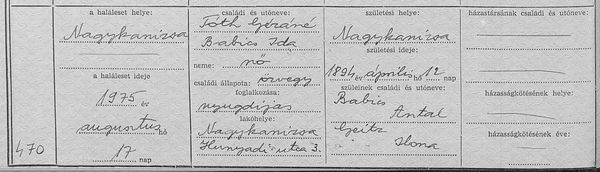 470
a haláleset helye:
Nagykanizsa
a haláleset ideje
1975 év
augusztus hó
17 nap
családi és utóneve:
Tóth Gézáné
Babics Ida
neme: nő
családi állapota: özvegy
foglalkozása:
nyugdíjas
lakóhelye:
Nagykanizsa
Hunyadi utca 3.
születési helye:
Nagykanizsa
születési ideje
1894 év április hó 12 nap
szüleinek családi és utóneve:
Babics
Antal
Geitz
Ilona
házastársának családi és utóneve:
házasságkötésének helye:
házasságkötésének éve: